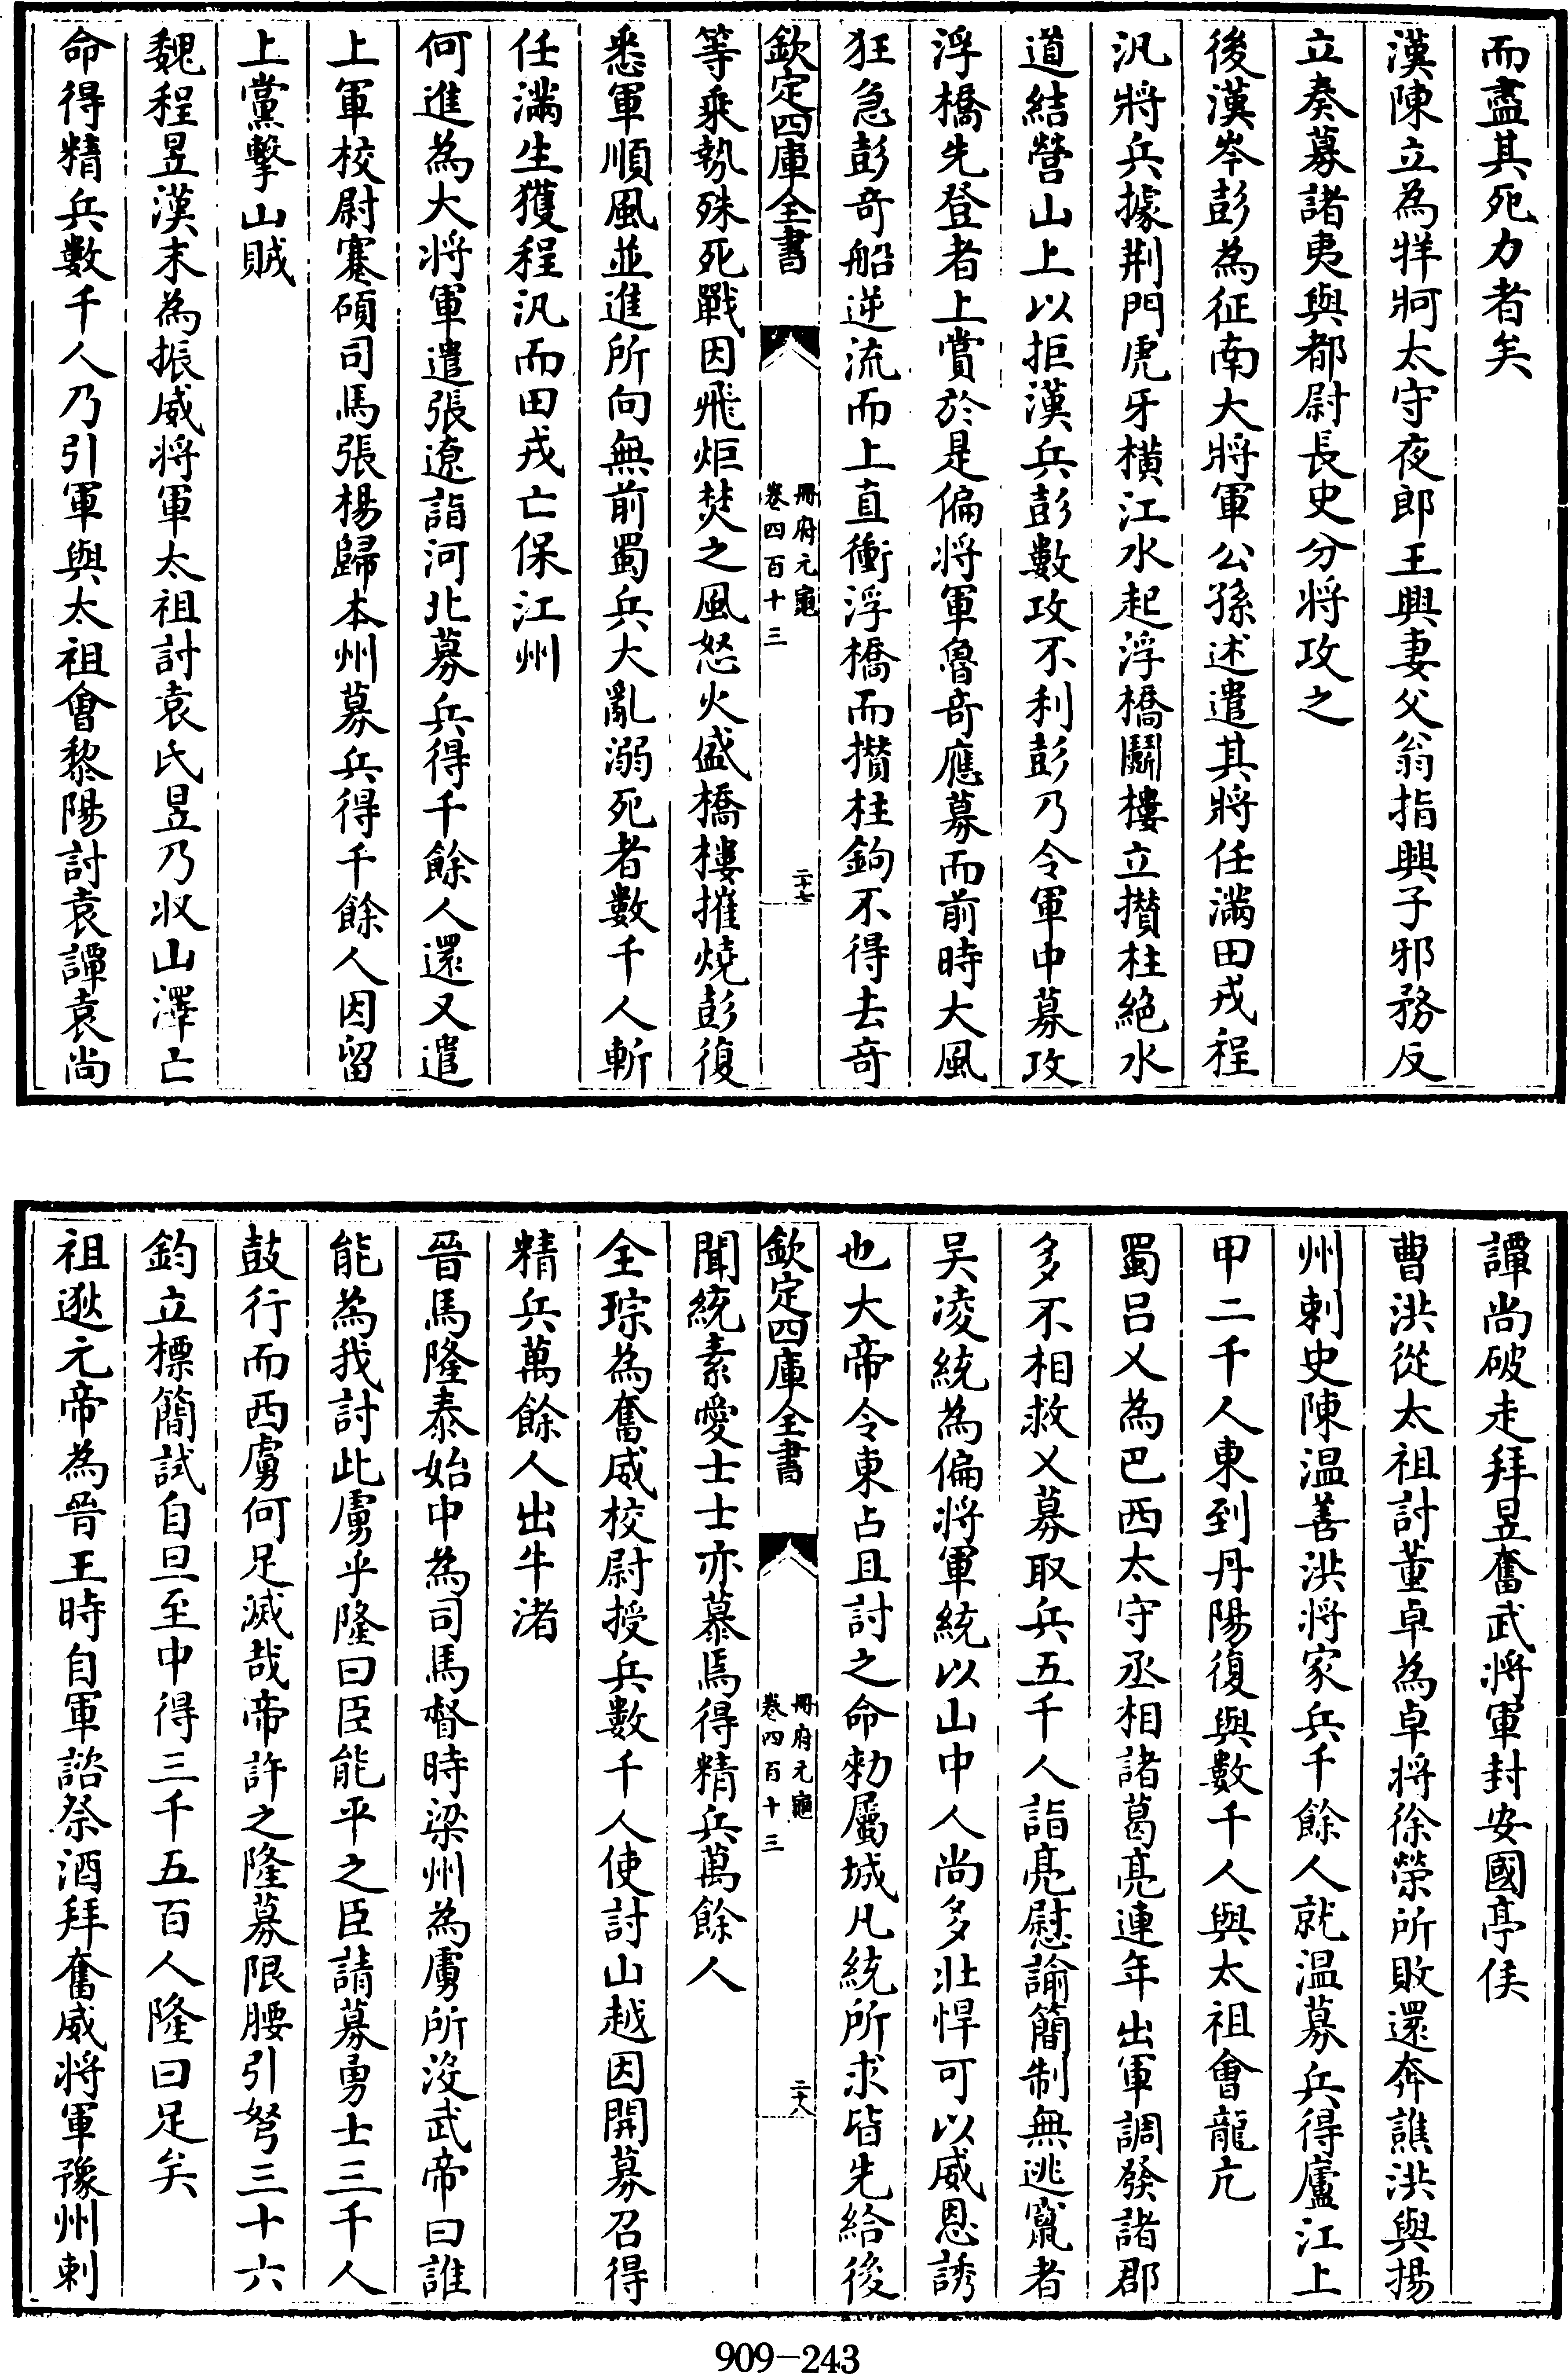 而盡其死力者矣
漢陳立為牂牁太守夜郎王興妻父翁指興子邪務反
立奏募諸夷與都尉長史分將攻之
後漢岑彭為征南大將軍公孫述遣其將任滿田戎程
汎將兵據荆門虎牙橫江水起浮橋鬬樓立攅柱絶水
道結營山上以拒漢兵彭數攻不利彭乃令軍中募攻
浮橋先登者上賞於是偏將軍魯奇應募而前時大風
狂急彭奇船逆流而上直衝浮橋而攅柱鉤不得去奇
欽定四庫全書
冊府元龜
卷四百十三
二十七
等乘勢殊死戰因飛炬焚之風怒火盛橋樓摧燒彭復
悉軍順風並進所向無前蜀兵大亂溺死者數千人斬
任滿生獲程汎而田戎亡保江州
何進為大將軍遣張遼詣河北募兵得千餘人還又遣
上軍校尉蹇碩司馬張楊歸本州募兵得千餘人因留
上黨擊山賊
魏程昱漢末為振威將軍太祖討袁氏昱乃収山澤亡
命得精兵數千人乃引軍與太祖會黎陽討袁譚袁尚
譚尚破走拜昱奮武將軍封安國亭侯
曹洪從太祖討董卓為卓將徐榮所敗還奔譙洪與揚
州刺史陳温善洪將家兵千餘人就温募兵得廬江上
甲二千人東到丹陽復與數千人與太祖會龍亢
蜀呂乂為巴西太守丞相諸葛亮連年出軍調發諸郡
多不相救乂募取兵五千人詣亮慰諭簡制無逃竄者
吴凌統為偏將軍統以山中人尚多壯悍可以威恩誘
也大帝令東占且討之命勑屬城凡統所求皆先給後
欽定四庫全書
冊府元龜
卷四百十三
二十八
聞統素愛士士亦慕焉得精兵萬餘人
全琮為奮威校尉授兵數千人使討山越因開募召得
精兵萬餘人出牛渚
晉馬隆泰始中為司馬督時梁州為虜所沒武帝曰誰
能為我討此虜乎隆曰臣能平之臣請募勇士三千人
鼓行而西虜何足滅哉帝許之隆募限腰引弩三十六
鈞立標簡試自旦至中得三千五百人隆曰足矣
祖逖元帝為晉王時自軍諮祭酒拜奮威將軍豫州刺
909-243